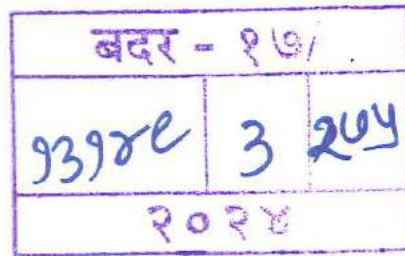 बदर - १७/
१३१४९ ३ २७५
२०२४